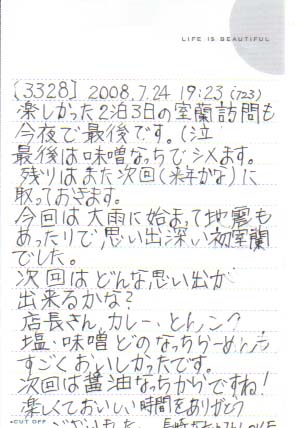 LIFE IS BEAUTIFUL
[3328] 2008.7.24 19:23 (723)
楽しかった2泊3日の室蘭訪問も
今夜で最後です。(泣
最後は味噌なっちでシメます。
残りはまた次回(来年かな)に
取っておきます。
今回は大雨に始まって地震も
あったりで思い出深い初室蘭
でした。
次回はどんな思い出が
出来るかな?
店長さん、カレー、とん
塩・味噌どのなっちらーめんも
すごくおいしかったです。
次回は醤油なっちからですね!
楽しくておいしい時間をありがとう
ございました。
CUT OFF